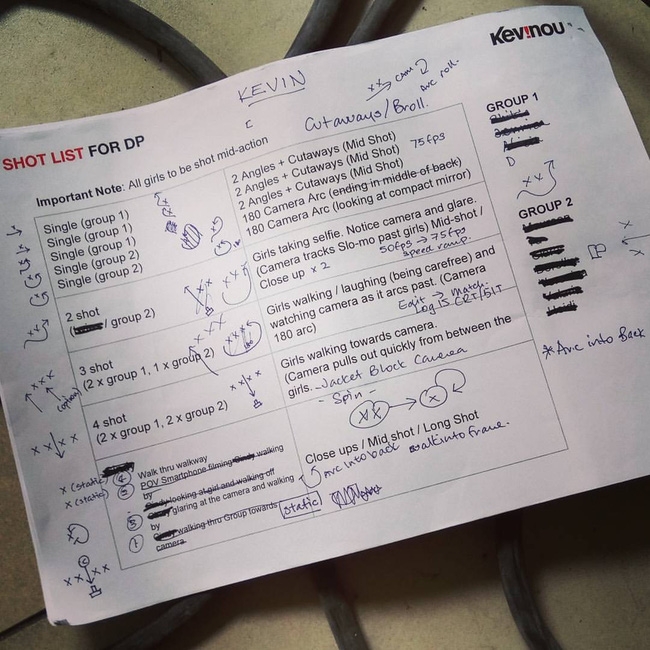 Kev!nou
KEVIN
SHOT LIST FOR DP
Cutaways/Broll.
xx cam
arc roll.
Important Note: All girls to be shot mid-action
GROUP 1
D
GROUP 2
Single (group 1)
Single (group 1)
Single (group 1)
Single (group 2)
Single (group 2)
2 Angles + Cutaways (Mid Shot)
2 Angles + Cutaways (Mid Shot) 75fps
2 Angles + Cutaways (Mid Shot)
180 Camera Arc (ending in middle of back)
180 Camera Arc (looking at compact mirror)
2 shot
/ group 2)
Girls taking selfie. Notice camera and glare.
(Camera tracks Slo-mo past girls) Mid-shot /
Close up x 2
50fps → 75fps
speed ramp.
3 shot
(2 x group 1, 1 x group 2)
(option)
Girls walking / laughing (being carefree) and
watching camera as it arcs past. (Camera
180 arc)
Edit → Match.
4 shot
(2 x group 1, 2 x group 2)
Girls walking towards camera.
(Camera pulls out quickly from between the
girls. - Jacket Block Camera
- Spin -
* Arc into Back
x (static)
x (static)
Walk thru walkway
POV Smartphone filming walking
by
looking at girl and walking off
glaring at the camera and walking
by
walking thru Group towards
camera
Close ups / Mid shot / Long Shot
Arc into back walk into frame.
static